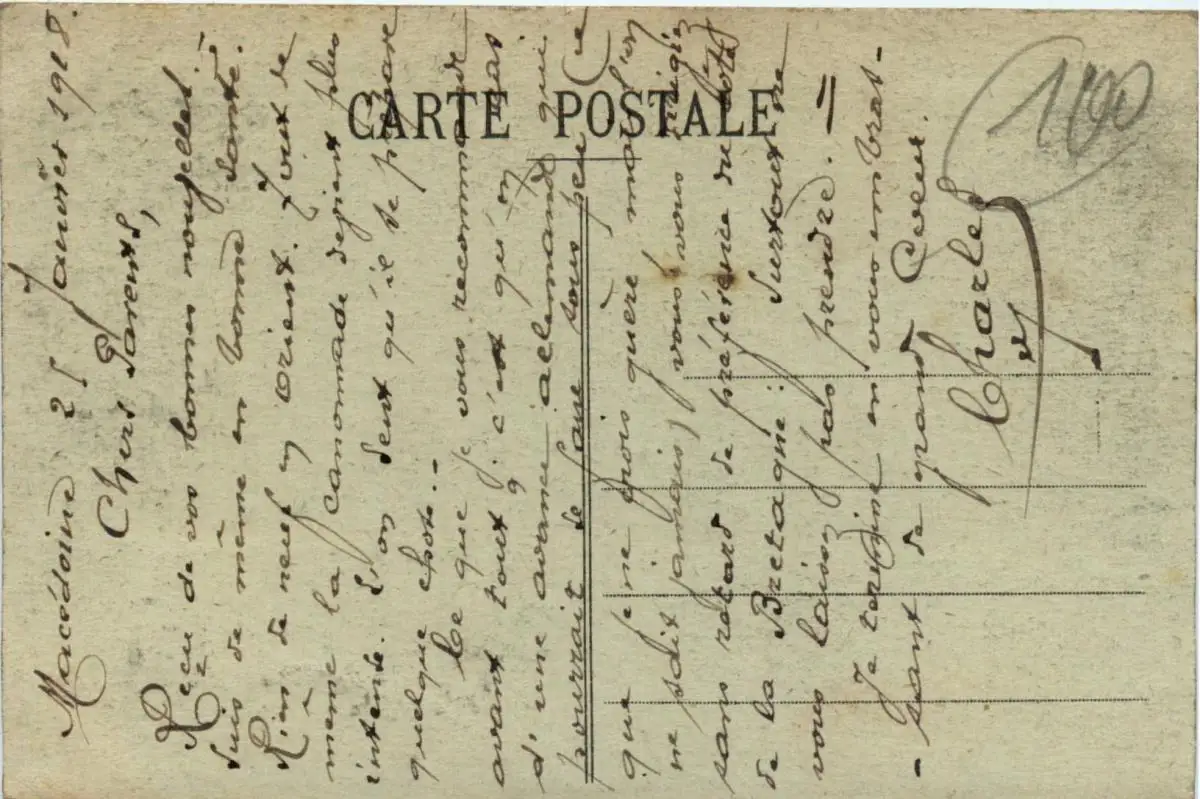 Macédoine 25 Janvier 1918.
Chers Parents,
Reçu de vos bonnes nouvelles
suis de même en bonne santé.
Rien de neuf en Orient. Tout de
même la canonnade devient plus
intense. L'on sent qu'il se prépare
quelque chose. -
Ce que je vous recommande
avant tout. c'est qu'en cas
d'une avance allemande qui
pourrait se faire sous peu (ce
que je ne crois guère mais l'on
ne sait jamais) vous vous
sans retard de préférence du côté
de la Bretagne. Surtout ne
vous laissez pas prendre. =
Je termine en vous embras-
- sant de grand Cœur.
Charles
CARTE POSTALE
100